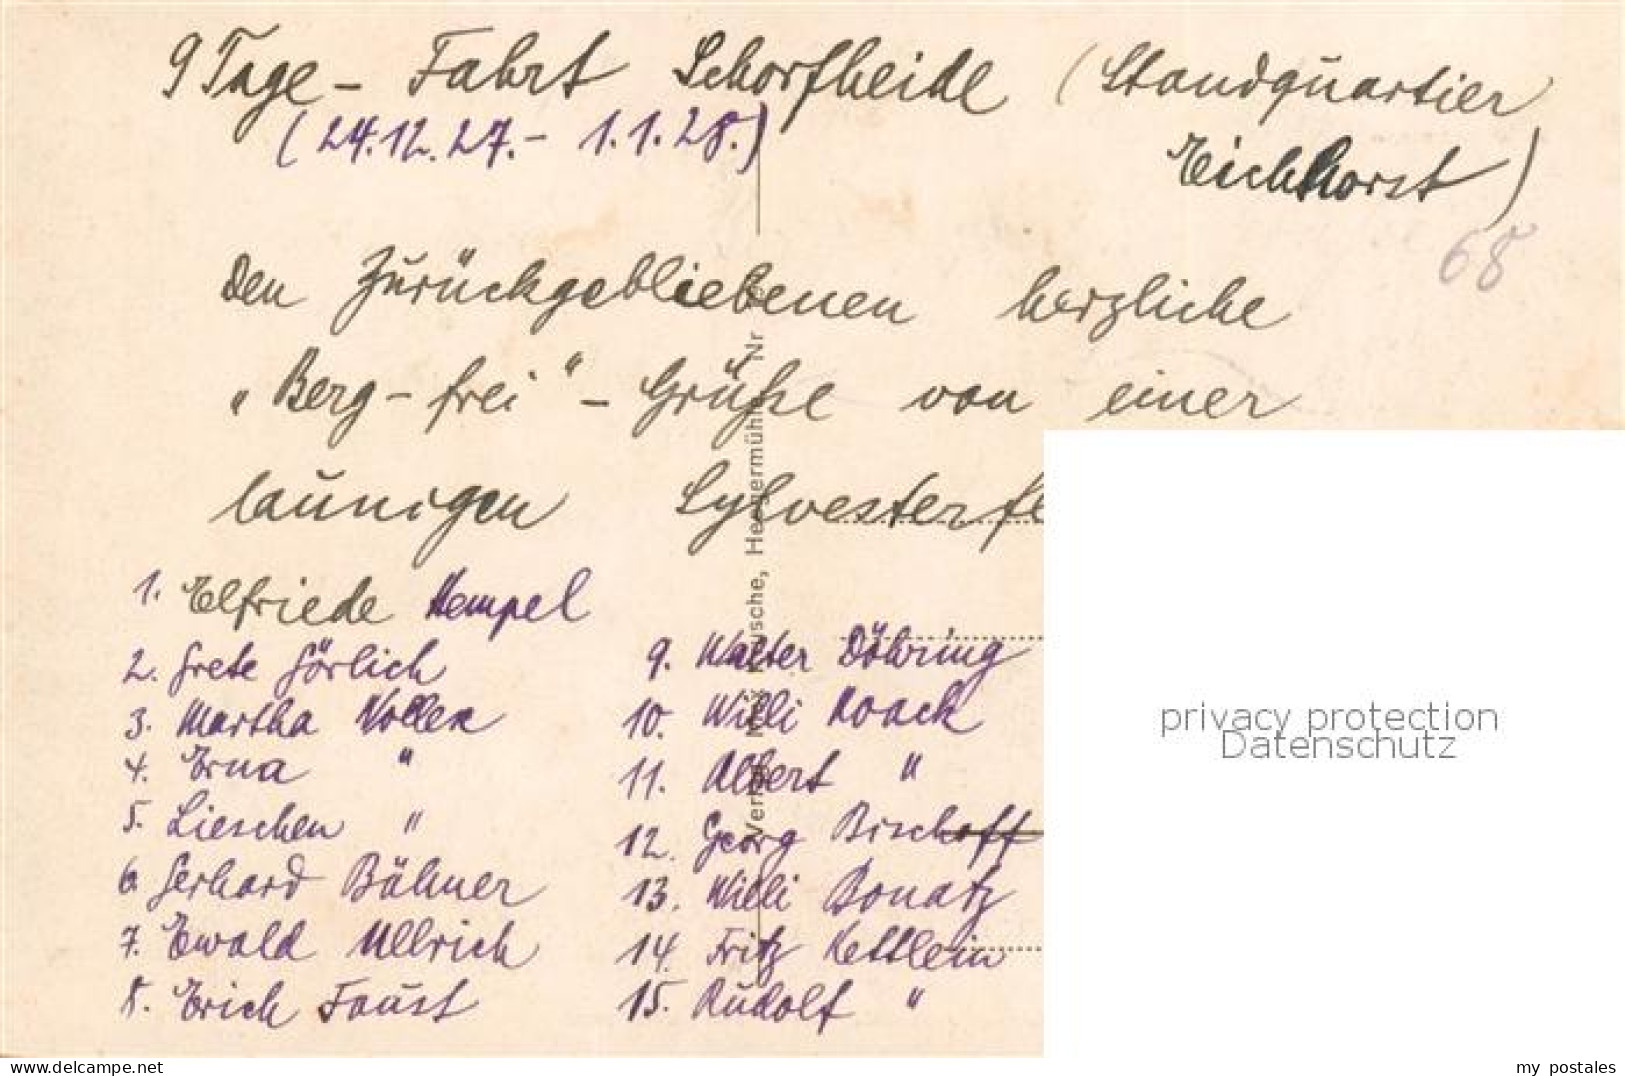 9 Tage - Fahrt Schorfheide (Standquartier
(24.12.27. - 1.1.28.)
Eichhorst)
68
Den Zurückgebliebenen herzliche
„Berg-frei" - Grüße von einer
launigen Sylvesterfe
1. Elfriede Hempel
2. Grete Görlich
3. Martha Noller
4. Erna "
5. Lieschen "
6. Gerhard Bähner
7. Ewald Ullrich
8. Erich Faust
9. Walter Döhring
10. Willi Noack
11. Albert "
12. Georg Bischoff
13. Willi Bonatz
14. Fritz Kettlein
15. Rudolf "
Verlag Max Kusche, Heegermühle Nr
privacy protection
Datenschutz
delcampe.net
my_postales